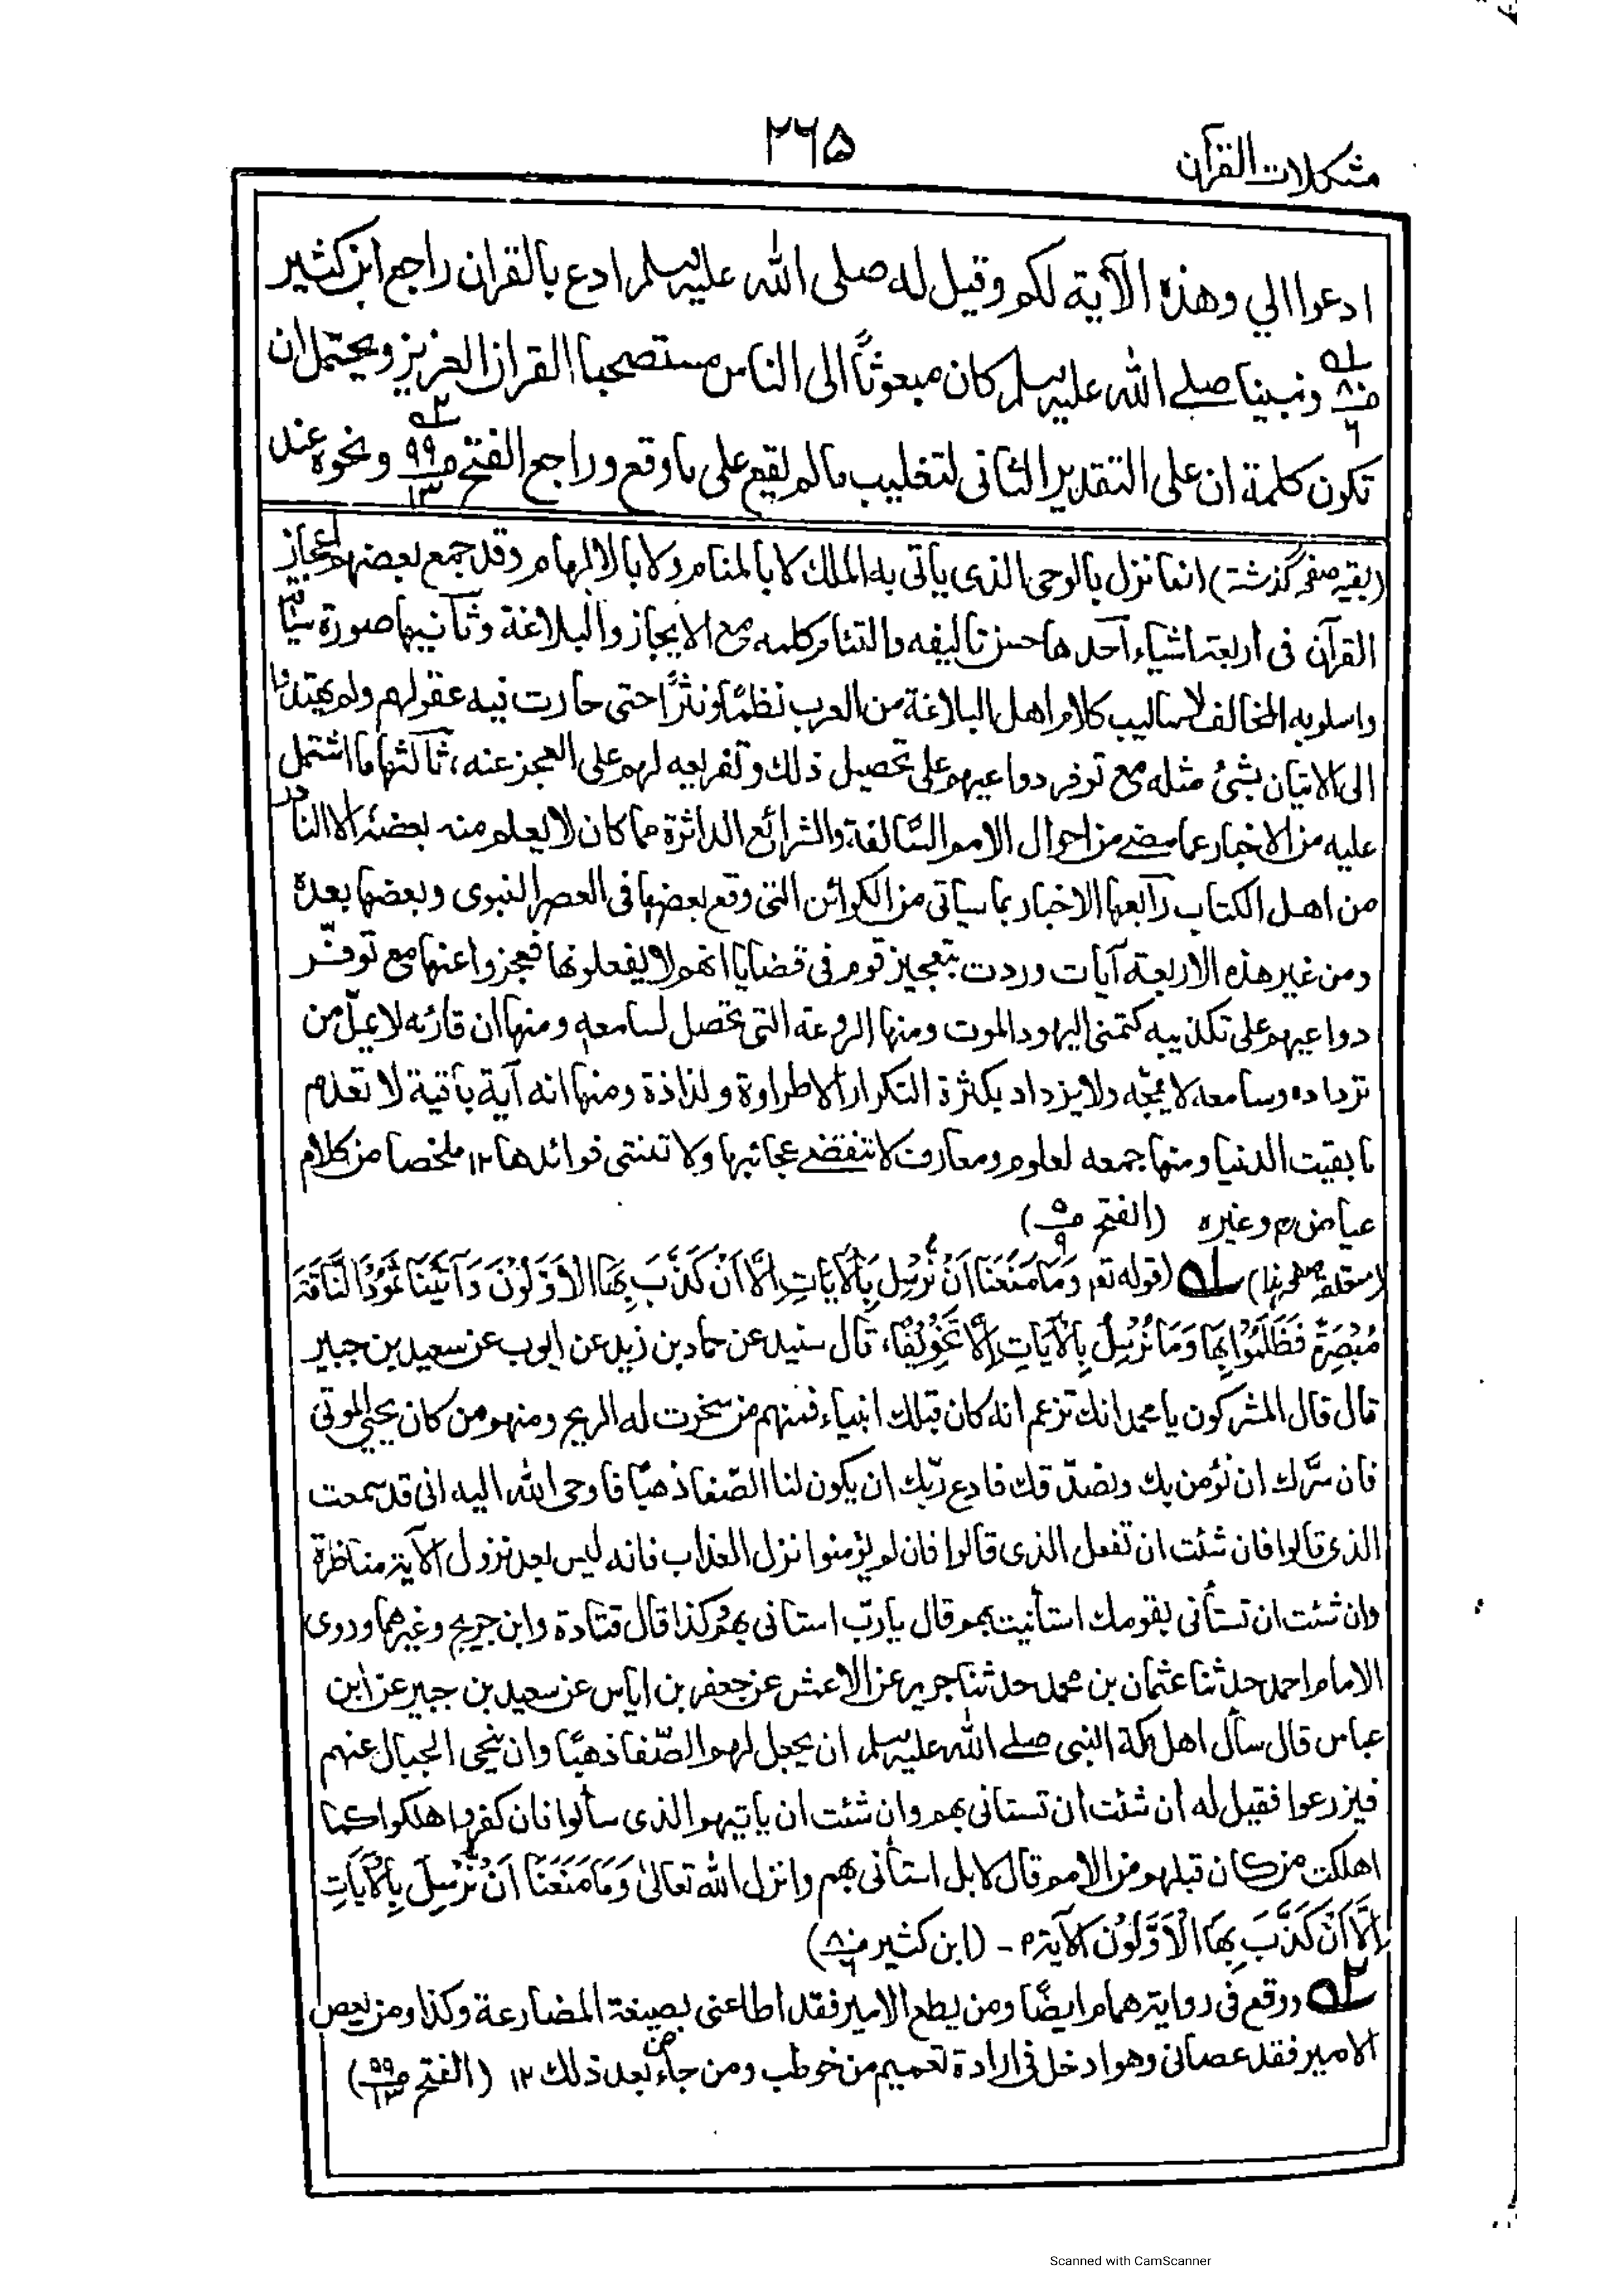 مشكلات القرآن
٢٦٥
ادعوا الي وهذه الآية لكم وقيل له صلى الله عليه وسلم ادع بالقران راجع ابن كثير
ص٨٠/٦ له ونبينا صلے الله عليه وسلم كان مبعوثًا الى الناس مستصحبا القران العزيز ويحتمل ان
تكون كلمة ان على التقدير الثانى لتغليب مالم يقع على ما وقع وراجع الفتح ص٩٩/١٣ ٢ه ونحوه عند
(بقيہ صفحہ گذشتہ) انما نزل بالوحى الذى ياتى به الملك لا بالمنام ولا بالالهام وقد جمع بعضهم اعجاز
القرآن فى اربعة اشياء آحدها حسن تاليفه والتئام كلمه مع الايجاز والبلاغة وثآنيها صورة سياقه
واسلوبه المخالف لاساليب كلام اهل البلاغة من العرب نظمًا ونثرًا حتى حارت فيه عقولهم ولم يهتدوا
الى الاتيان بشئ مثله مع توفر دواعيهم على تحصيل ذلك وتقريعه لهم على العجز عنه، ثآلثها ما اشتمل
عليه من الاخبار عما مضے من احوال الامم السّالفة والشرائع الداثرة مما كان لا يعلم منه بعضه الا النادر
من اهل الكتاب رآبعها الاخبار بما سياتى من الكوائن التى وقع بعضها فى العصر النبوى وبعضها بعده
ومن غير هذه الاربعة آيات وردت بتعجيز قوم فى قضايا انهم لا يفعلونها فعجزوا عنها مع توفّر
دواعيهم على تكذيبه كتمنى اليهود الموت ومنها الروعة التى تحصل لسامعه ومنها ان قارئه لا يملّ من
ترداده وسامعه لا يمجّه ولا يزداد بكثرة التكرار الا طراوة ولذاذة ومنها انه آية باقية لا تعدم
ما بقيت الدنيا ومنها جمعه لعلوم ومعارف لا تنقضے عجائبها ولا تنتهى فوائدها ١٢ ملخصا من كلام
عياض رم وغيره (الفتح ص٥/٩)
(متعلقہ صفحہ ہذا) له (قوله تعہ وَمَا مَنَعَنَا اَنْ نُرْسِلَ بِالْاٰيَاتِ اِلَّا اَنْ كَذَّبَ بِهَا الْاَوَّلُوْنَ وَآتَيْنَا ثَمُوْدَ النَّاقَةَ
مُبْصِرَةً فَظَلَمُوْا بِهَا وَمَا نُرْسِلُ بِالْاٰيَاتِ اِلَّا تَخْوِيْفًا، قال سنيد عن حماد بن زيد عن ايوب عن سعيد بن جبير
قال قال المشركون يا محمد انك تزعم انه كان قبلك انبياء فمنهم من سخرت له الريح ومنهم من كان يحيي الموتى
فان سّرك ان نؤمن بك ونصدّقك فادع ربّك ان يكون لنا الصّفا ذهبًا فاوحى الله اليه انى قد سمعت
الذى قالوا فان شئت ان تفعل الذى قالوا فان لم يؤمنوا نزل العذاب فانه ليس بعد نزول الآية مناظرة
وان شئت ان تستأنى بقومك استأنيت بهم قال يا ربّ استانى بهم وكذا قال قتادة وابن جريج وغيرهما وروى
الامام احمد حدثنا عثمان بن محمد حدثنا جرير عن الاعمش عن جعفر بن اياس عن سعيد بن جبير عن ابن
عباس قال سأل اهل مكة النبى صلے الله عليه وسلم ان يجعل لهم الصّفا ذهبًا وان ينحى الجبال عنهم
فيزرعوا فقيل له ان شئت ان تستانى بهم وان شئت ان ياتيهم الذى سألوا فان كفروا هلكوا كما
اهلكت من كان قبلهم من الامم قال لا بل استأنى بهم وانزل الله تعالىٰ وَمَا مَنَعَنَا اَنْ نُّرْسِلَ بِالْاٰيَاتِ
اِلَّا اَنْ كَذَّبَ بِهَا الْاَوَّلُوْنَ الآية م - (ابن كثير ص٨٠/٦)
٢ه ووقع فى رواية همام ايضًا ومن يطع الامير فقد اطاعنى بصيغة المضارعة وكذا ومن يعص
الامير فقد عصانى وهو ادخل فى ارادة تعميم من خوطب ومن جاء من بعد ذلك ١٢ (الفتح ص٩٩/١٣)
Scanned with CamScanner